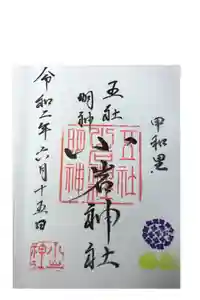 甲和里
五社
明神
小岩神社
令和二年六月十五日
五社
小岩
明神
小岩
神社